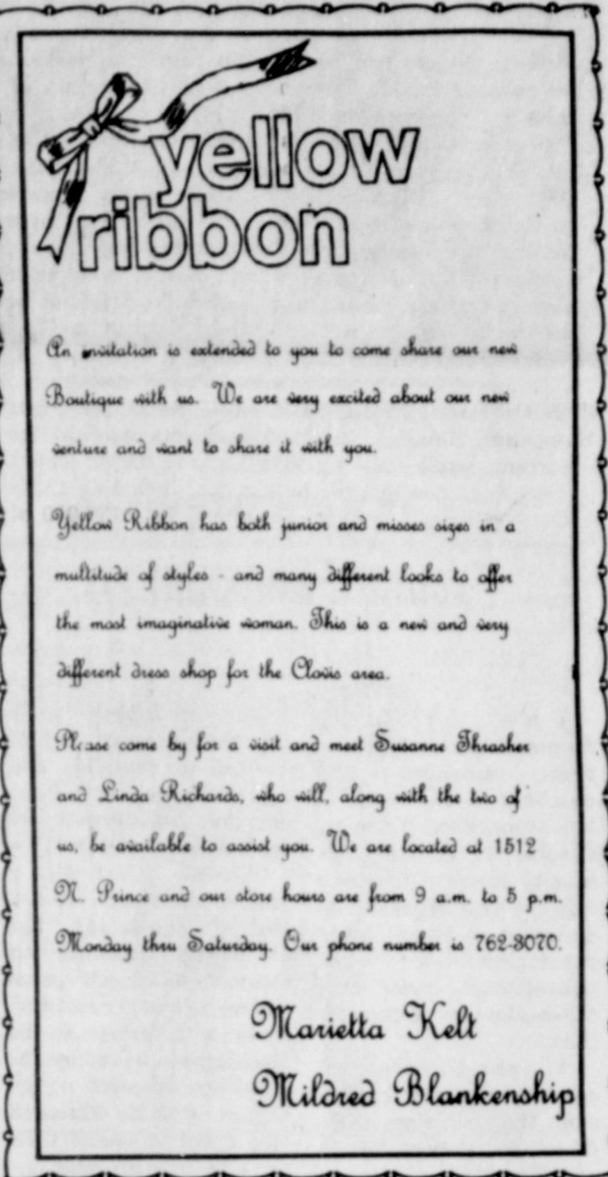 yellow
ribbon
An invitation is extended to you to come share our new
Boutique with us. We are very excited about our new
venture and want to share it with you.
Yellow Ribbon has both junior and misses sizes in a
multitude of styles - and many different looks to offer
the most imaginative woman. This is a new and very
different dress shop for the Clovis area.
Please come by for a visit and meet Susanne Thrasher
and Linda Richards, who will, along with the two of
us, be available to assist you. We are located at 1512
N. Prince and our store hours are from 9 a.m. to 5 p.m.
Monday thru Saturday. Our phone number is 762-3070.
Marietta Kelt
Mildred Blankenship